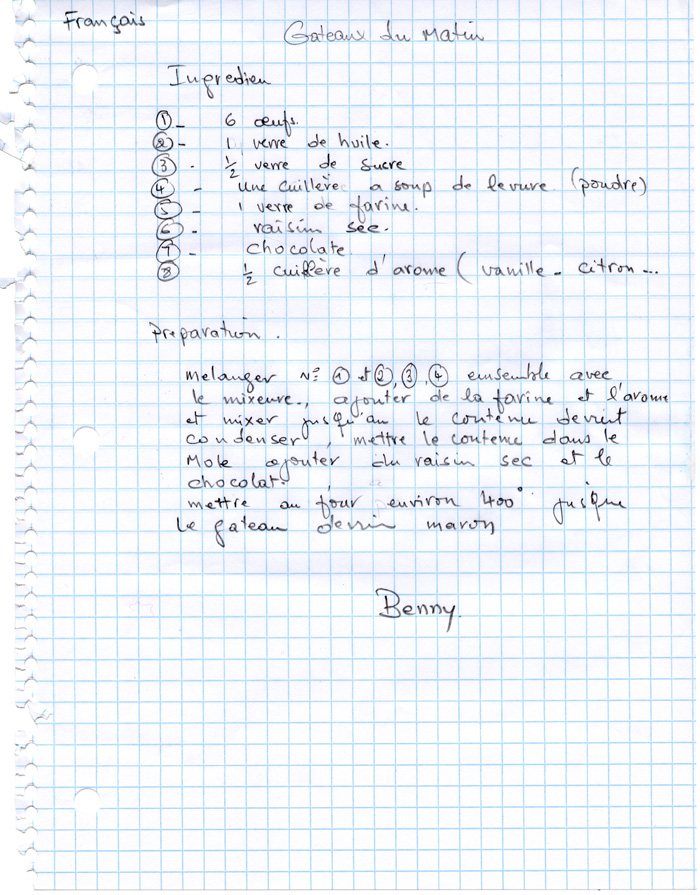 Français
Gateaux du Matin
Ingredien
① - 6 œufs.
② - 1 verre de huile.
③ - ½ verre de sucre
④ - une cuillère a soup de levure (poudre)
⑤ - 1 verre de farine.
⑥ - raisim sec.
⑦ - chocolate.
⑧ ½ cuillère d'arome ( vanille - citron ...
Preparation.
melanger N° ① et ②, ③, ④ emsemble avec
le mixeure., ajouter de la farine et l'arome
et mixer jusqu'au le contenu devient
condenser, mettre le contenu dans le
Mole ajouter du raisin sec et le
chocolat.
mettre au four environ 400° jusque
le gateau devin maron
Benny.